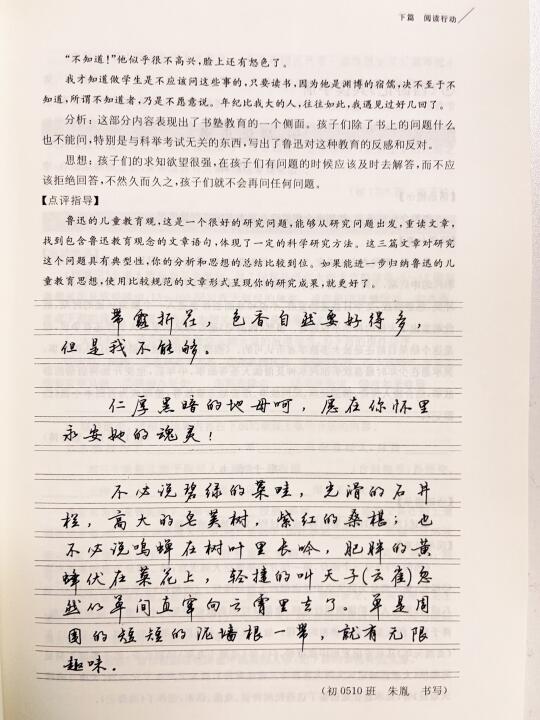 下篇 阅读行动
“不知道！”他似乎很不高兴，脸上还有怒色了。
我才知道做学生是不应该问这些事的，只要读书，因为他是渊博的宿儒，决不至于不
知道，所谓不知道者，乃是不愿意说。年纪比我大的人，往往如此，我遇见过好几回了。
分析：这部分内容表现出了书塾教育的一个侧面。孩子们除了书上的问题什么
也不能问，特别是与科举考试无关的东西，写出了鲁迅对这种教育的反感和反对。
思想：孩子们的求知欲望很强，在孩子们有问题的时候应该及时去解答，而不应
该拒绝回答，不然久而久之，孩子们就不会再问任何问题。
【点评指导】
鲁迅的儿童教育观，这是一个很好的研究问题，能够从研究问题出发，重读文章，
找到包含鲁迅教育观念的文章语句，体现了一定的科学研究方法。这三篇文章对研究
这个问题具有典型性，你的分析和思想的总结比较到位。如果能进一步归纳鲁迅的儿
童教育思想，使用比较规范的文章形式呈现你的研究成果，就更好了。
带露折花，色香自然要好得多，
但是我不能够。
仁厚黑暗的地母呵，愿在你怀里
永安她的魂灵！
不必说碧绿的菜畦，光滑的石井
栏，高大的皂荚树，紫红的桑椹；也
不必说鸣蝉在树叶里长吟，肥胖的黄
蜂伏在菜花上，轻捷的叫天子(云雀)忽
然从草间直窜向云霄里去了。单是周
围的短短的泥墙根一带，就有无限
趣味。
（初0510班 朱胤 书写）